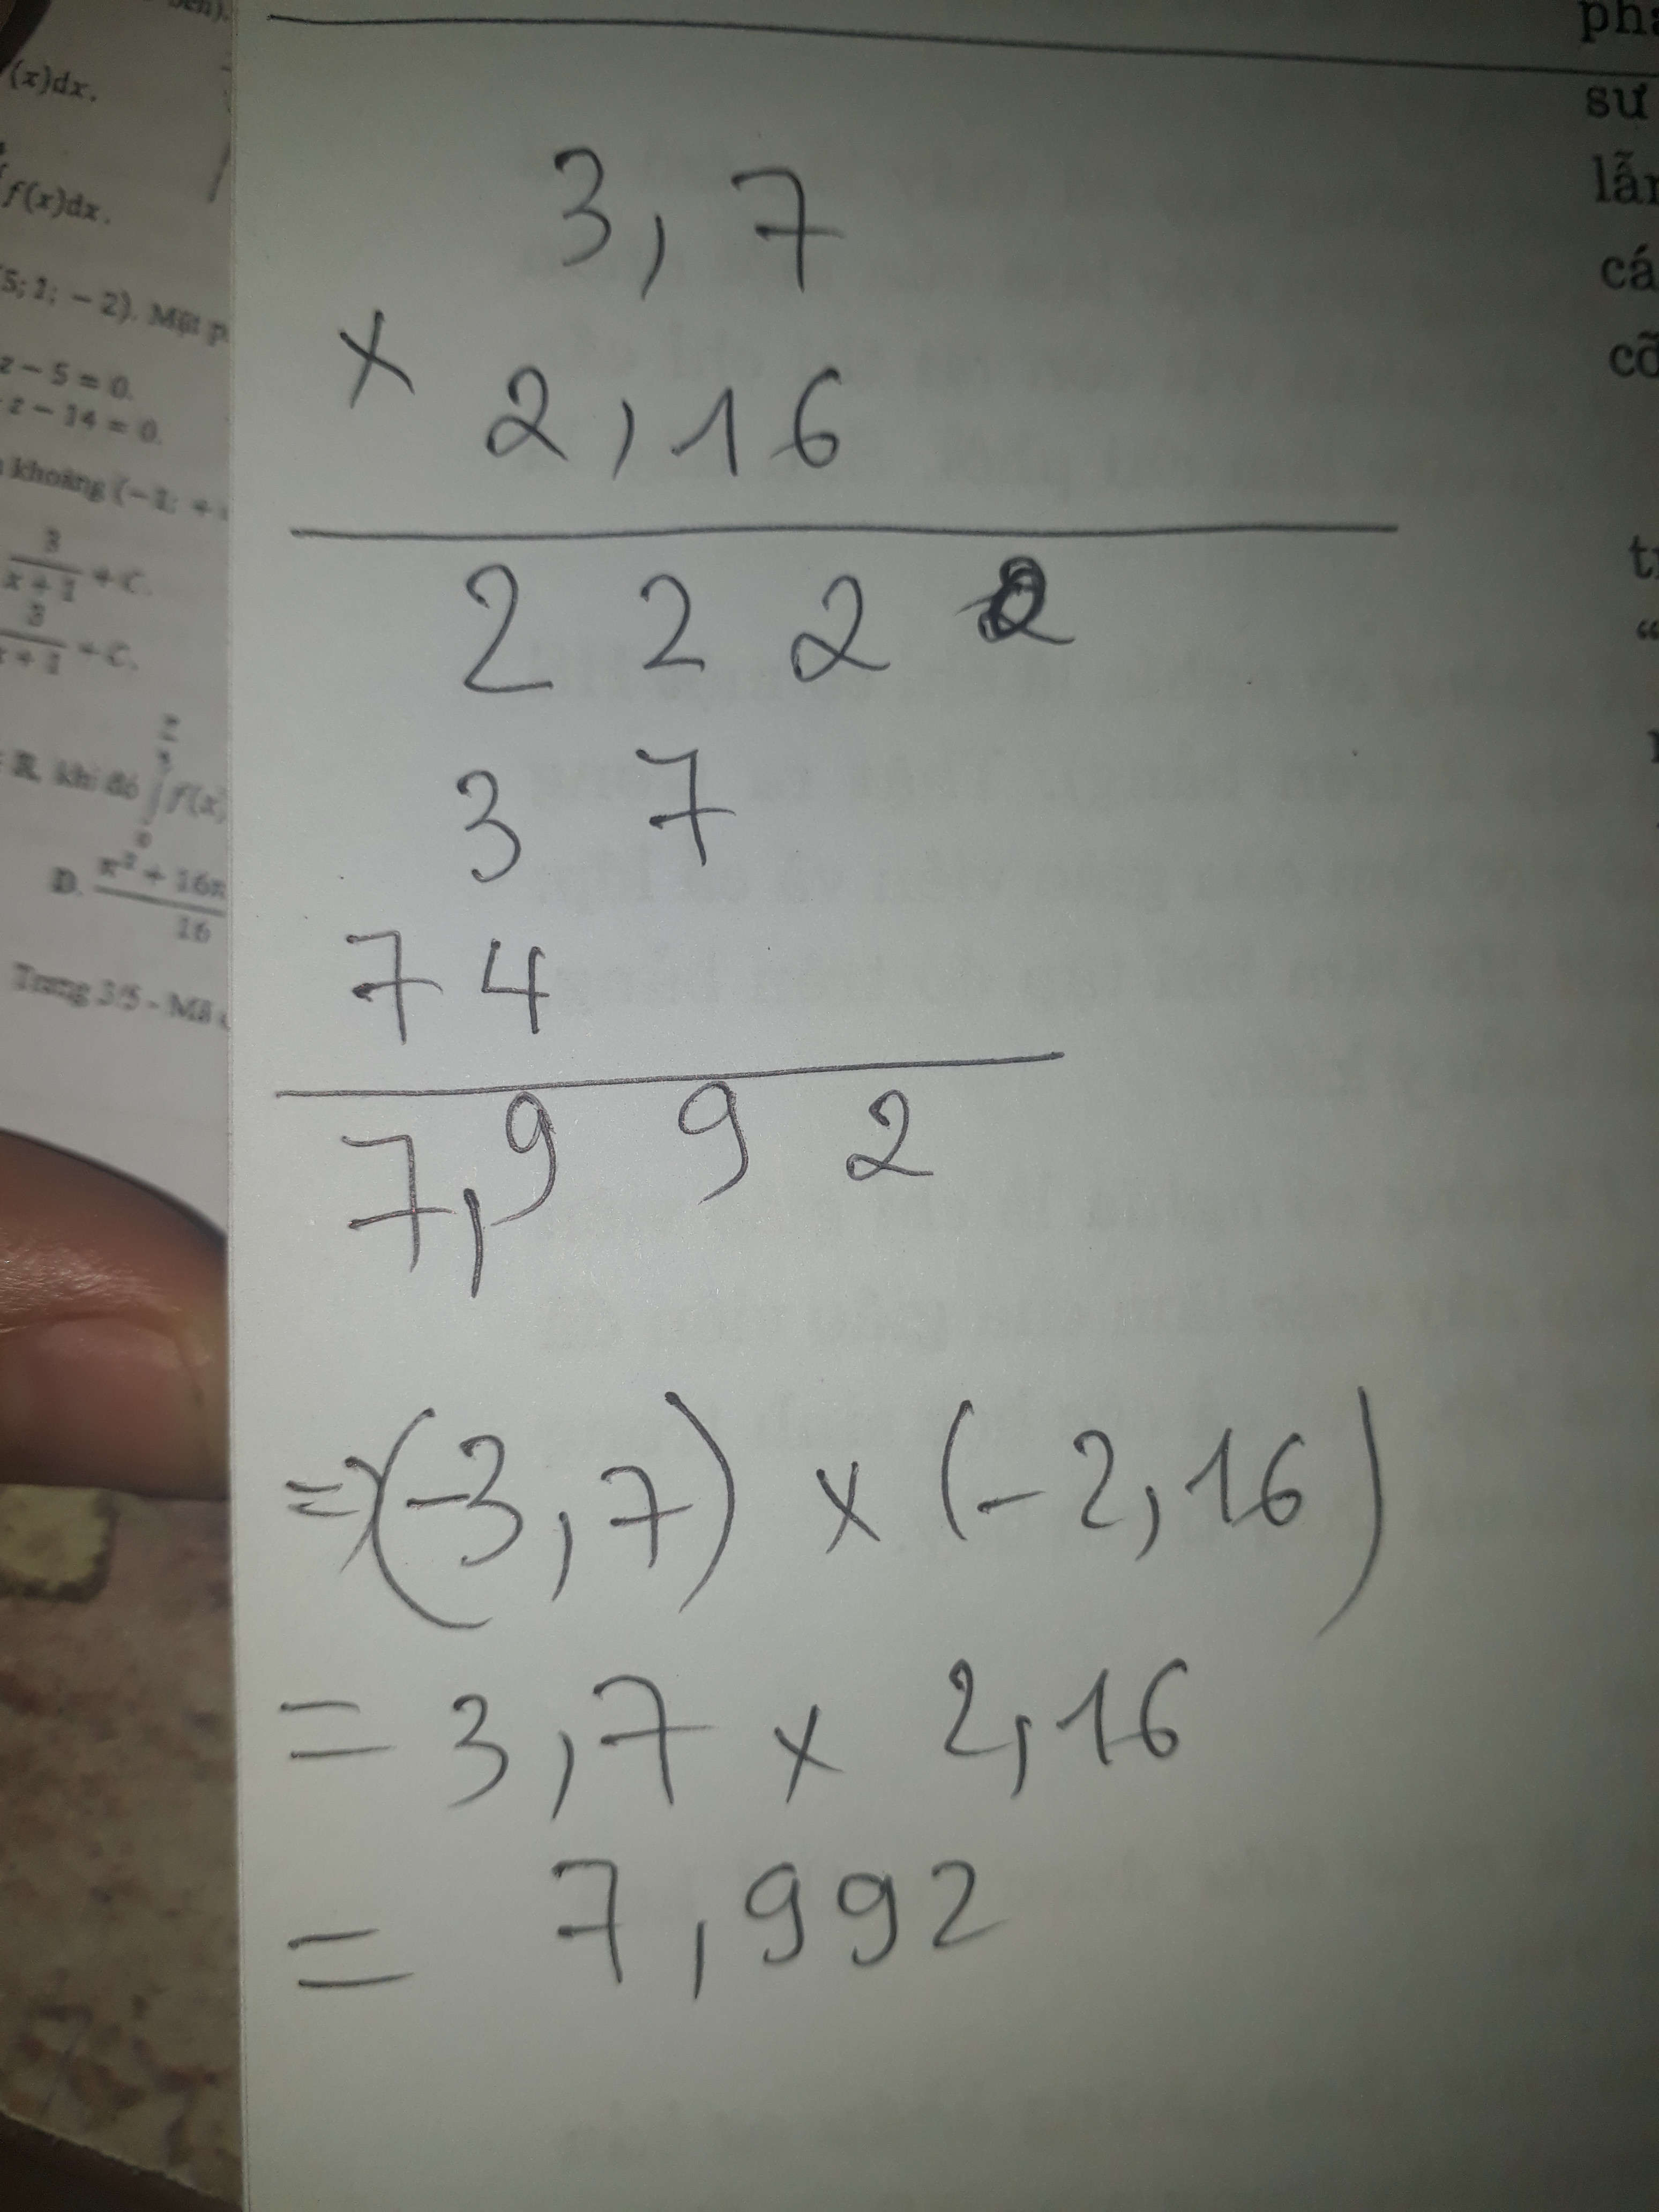 (x)dx.
f(x)dx.
5; 1; − 2). Mặt p
z − 5 = 0.
z − 14 = 0.
khoảng (−1; +
3
x + 1 + C.
3
x + 1 + C.
R, khi đó ∫ f(x)
D. π² + 16π
16
Trang 3/5 - Mã
3,7
x 2,16
2 2 2 2
3 7
7 4
7,9 9 2
=> (-3,7) x (-2,16)
= 3,7 x 2,16
= 7,992
sư
cá